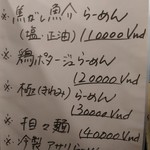 ※馬がし魚介らーめん
(塩・正油) 110000Vnd
※鶏ポタージュらーめん
120000Vnd
※極(きわみ)らーめん
130000Vnd
※担々麺
140000Vnd
※冷製アサリ